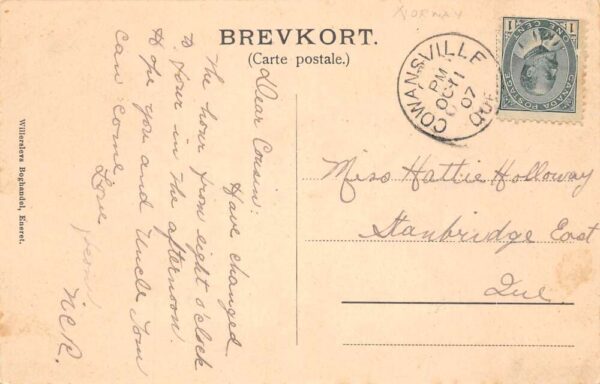 NORWAY
BREVKORT.
(Carte postale.)
COWANSVILLE
PM
OCT 1
07
QUE
1 1
CANADA POSTAGE
ONE CENT
Dear Cousin:
Have changed
the hour from eight o'clock
to four in the afternoon.
Hope you and Uncle Tom
can come
Love
N.C.R.
Miss Hattie Holloway
Stanbridge East
Que.
Willerslevs Boghandel, Eneret.